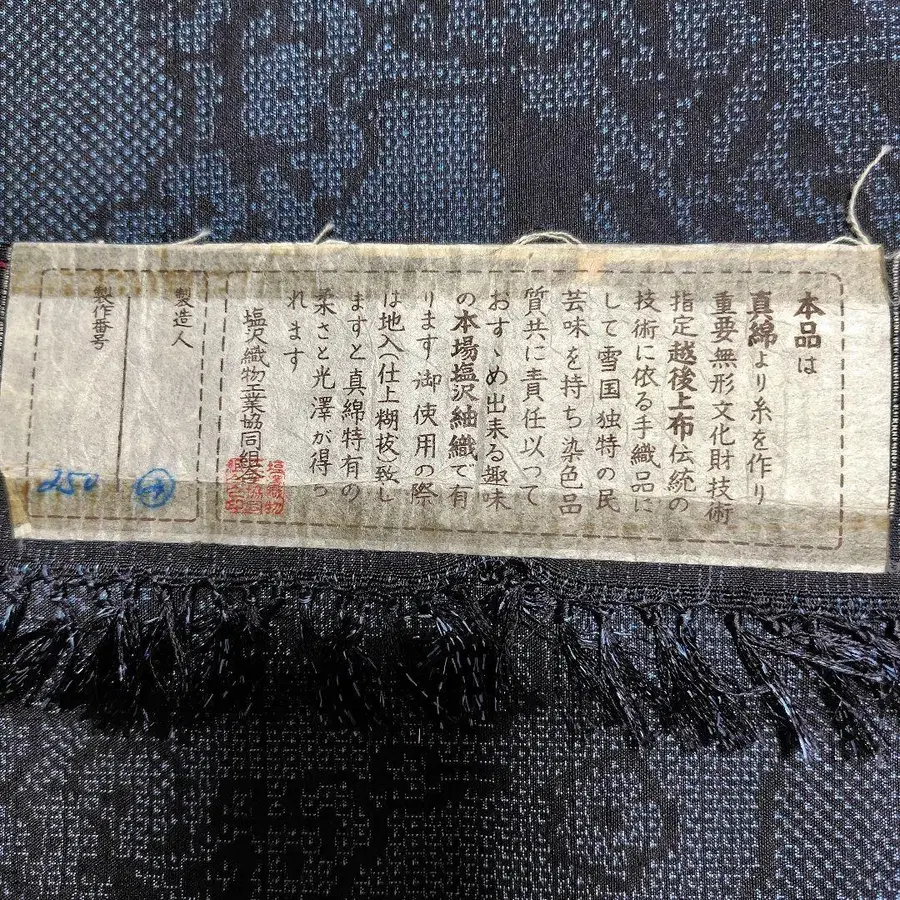 本品は
真綿より糸を作り
重要無形文化財技術
指定越後上布伝統の
技術に依る手織品に
して雪国独特の民
芸味を持ち染色品
質共に責任以って
おすゝめ出来る趣味
の本場塩沢紬織で有
ります御使用の際
は地入(仕上糊抜)致し
ますと真綿特有の
柔さと光澤が得ら
れます
塩沢織物工業協同組合
製造人
製作番号
250